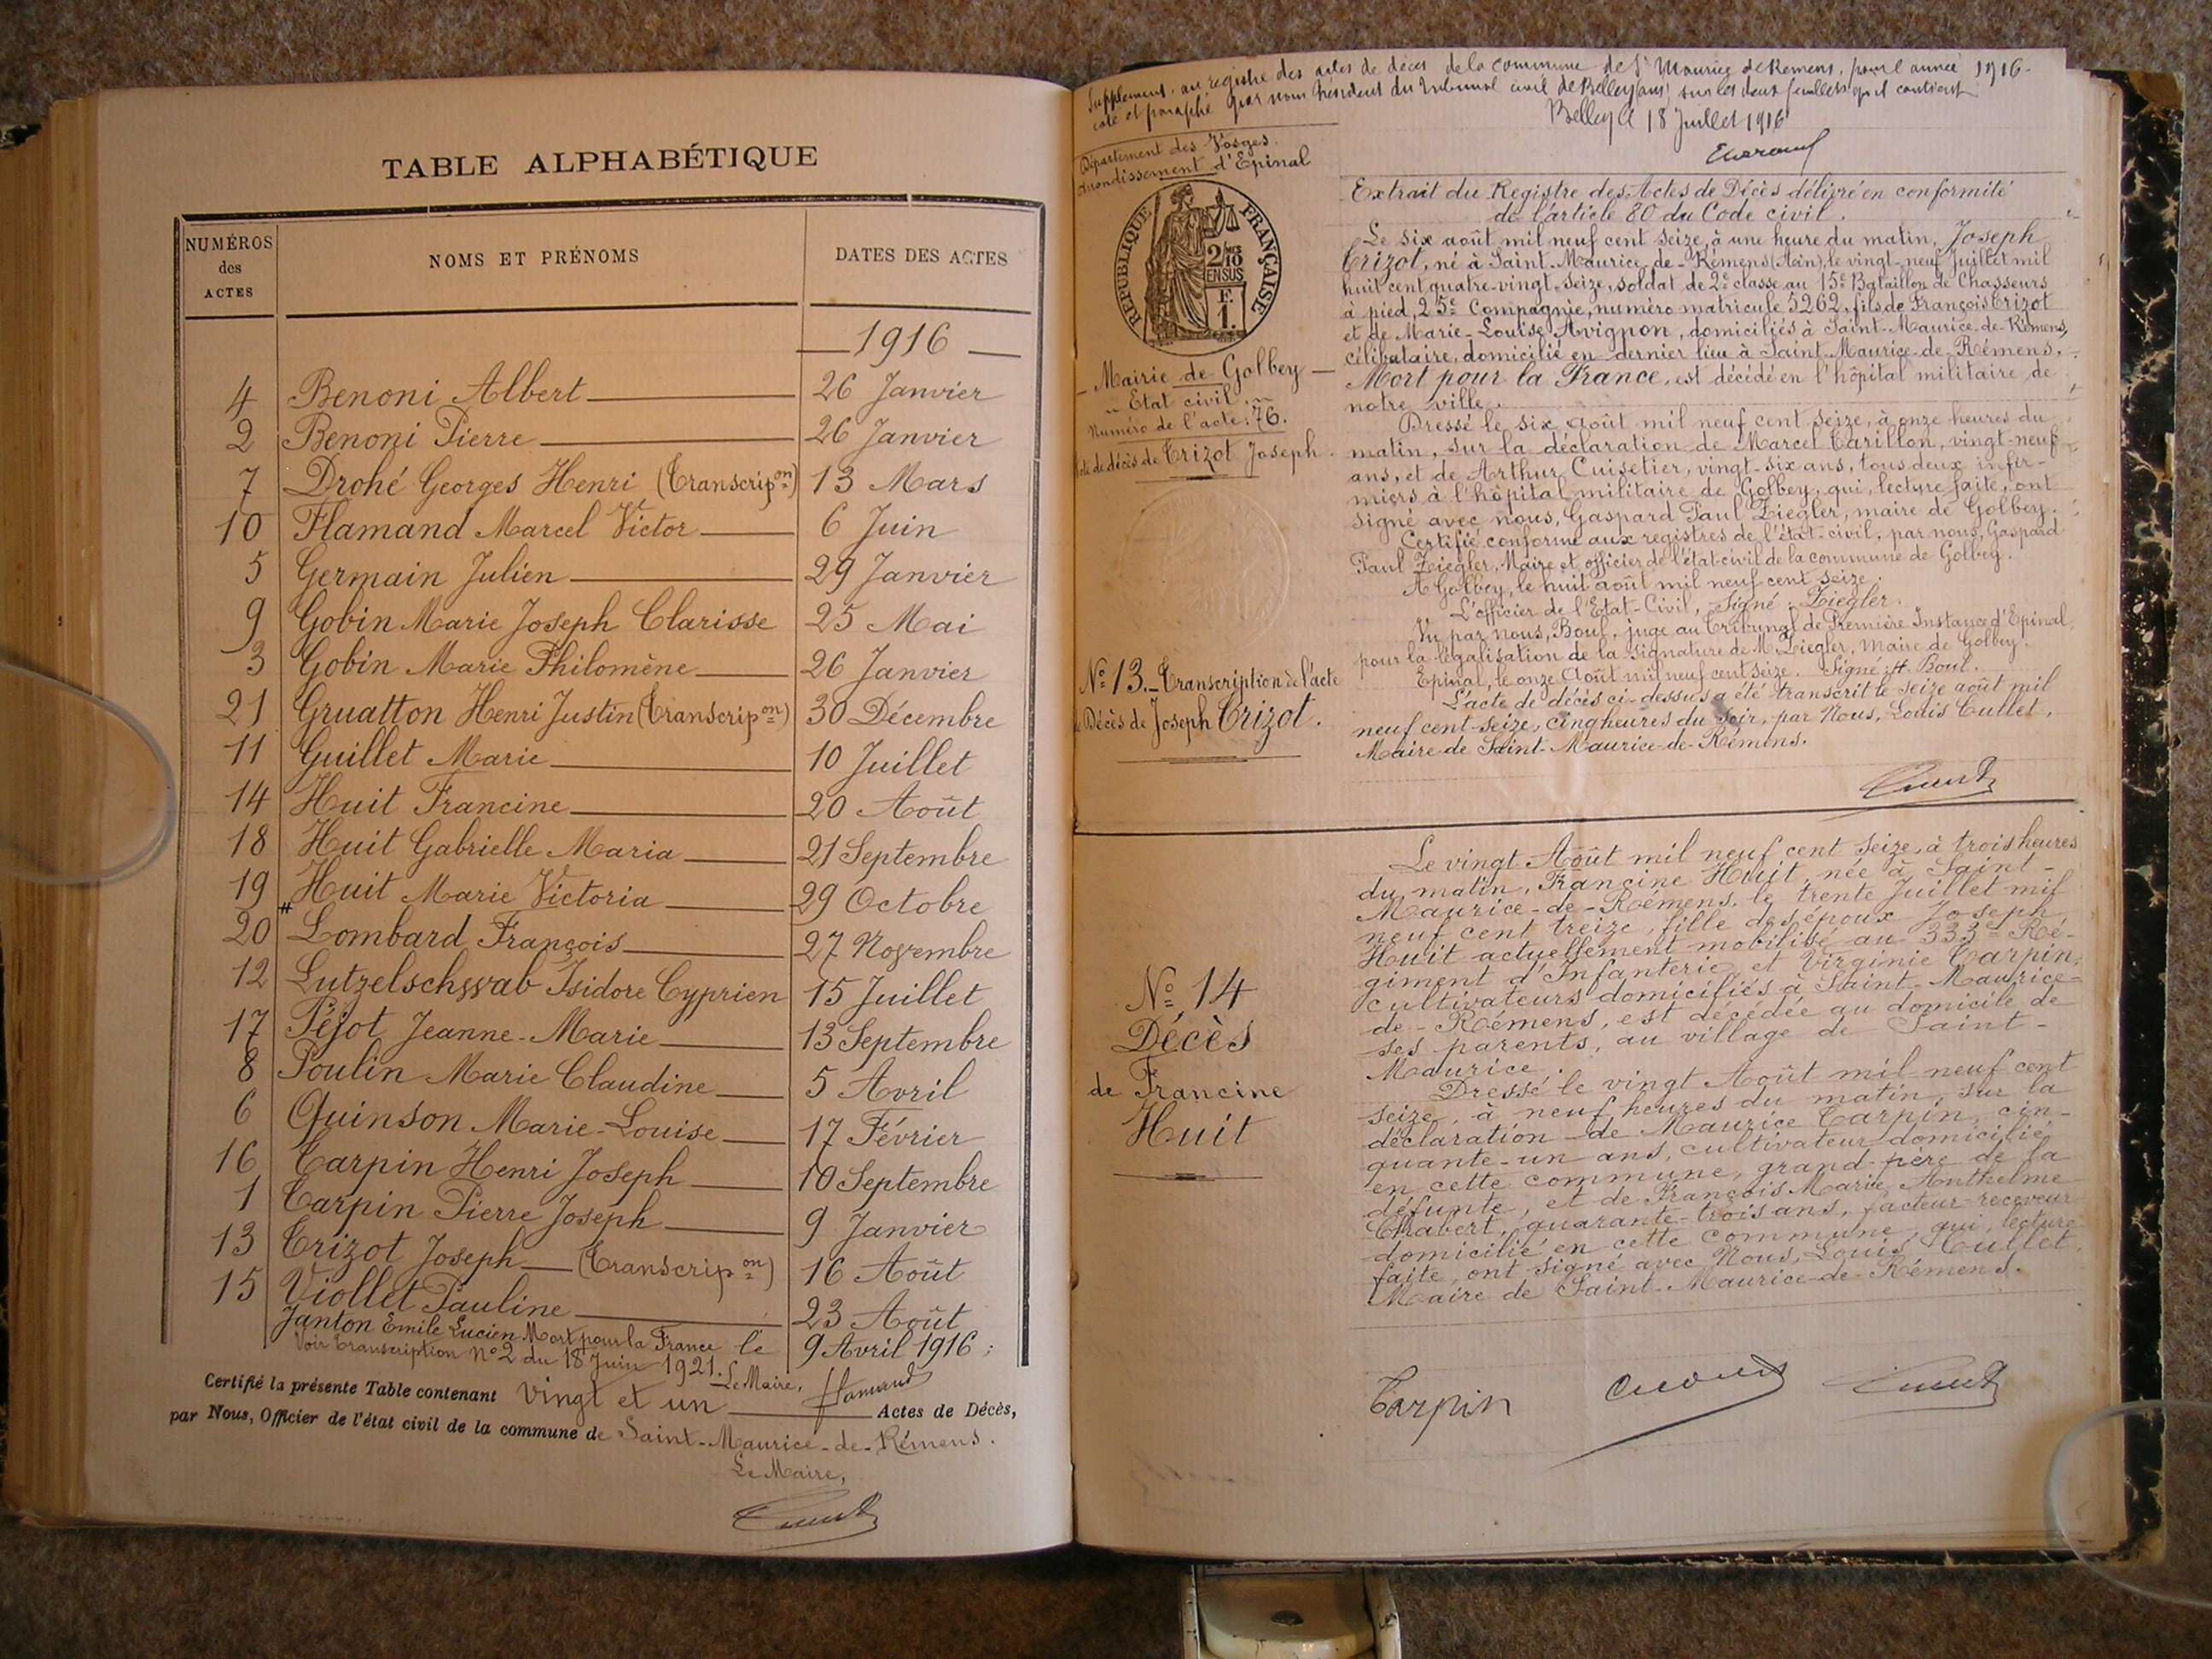 TABLE ALPHABÉTIQUE
NUMÉROS
des
ACTES
NOMS ET PRÉNOMS
DATES DES ACTES
1916
4 Benoni Albert 26 Janvier
2 Benoni Pierre 26 Janvier
7 Drohé Georges Henri (Transcripon) 13 Mars
10 Flamand Marcel Victor 6 Juin
5 Germain Julien 29 Janvier
9 Gobin Marie Joseph Clarisse 25 Mai
3 Gobin Marie Philomène 26 Janvier
21 Gruatton Henri Justin (Transcripon) 30 Décembre
11 Guillet Marie 10 Juillet
14 Huit Francine 20 Août
18 Huit Gabrielle Maria 21 Septembre
19 Huit Marie Victoria 29 Octobre
20 Lombard François 27 Novembre
12 Lutzelschwab Isidore Cyprien 15 Juillet
17 Péjot Jeanne-Marie 13 Septembre
8 Poulin Marie Claudine 5 Avril
6 Quinson Marie-Louise 17 Février
16 Tarpin Henri Joseph 10 Septembre
1 Tarpin Pierre Joseph 9 Janvier
13 Trizot Joseph (Transcripon) 16 Août
15 Viollet Pauline 23 Août
Janton Emile Lucien Mort pour la France le 9 Avril 1916;
Voir transcription No 2 du 18 Juin 1921. Le Maire,
Certifié la présente Table contenant vingt et un Actes de Décès,
par Nous, Officier de l'état civil de la commune de Saint-Maurice-de-Rémens.
Le Maire,
Supplément au registre des actes de décès de la commune de St Maurice de Remens, pour l'année 1916.
coté et paraphé par nous Président du Tribunal civil de Belley (Ain) sur les deux feuilles qu'il contient
Belley le 18 Juillet 1916
Département des Vosges.
Arrondissement d'Epinal
RÉPUBLIQUE FRANÇAISE
2/10
EN SUS
F.
1.
Mairie de Golbey
Etat civil.
Numéro de l'acte: 76.
Acte de décès de Trizot Joseph.
Extrait du Registre des Actes de Décès délivré en conformité
de l'article 80 du Code civil.
Le six août mil neuf cent seize, à une heure du matin, Joseph
Trizot, né à Saint-Maurice-de-Rémens (Ain), le vingt-neuf Juillet mil
huit cent quatre-vingt-seize, soldat de 2e classe au 15e Bataillon de Chasseurs
à pied, 25e Compagnie, numéro matricule 5262, fils de François Trizot
et de Marie-Louise Avignon, domiciliés à Saint-Maurice-de-Rémens,
célibataire, domicilié en dernier lieu à Saint-Maurice-de-Rémens,
Mort pour la France, est décédé en l'hôpital militaire de
notre ville.
Dressé le six août mil neuf cent seize, à onze heures du
matin, sur la déclaration de Marcel Tarillon, vingt-neuf
ans, et de Arthur Cuisetier, vingt-six ans, tous deux infir-
miers à l'hôpital militaire de Golbey, qui, lecture faite, ont
signé avec nous, Gaspard Paul Ziegler, maire de Golbey.
Certifié conforme aux registres de l'état-civil, par nous, Gaspard
Paul Ziegler, Maire et officier de l'état-civil de la commune de Golbey.
A Golbey, le huit août mil neuf cent seize.
L'officier de l'Etat-Civil, Signé: Ziegler.
Vu par nous, Boul, juge au Tribunal de Première Instance d'Epinal,
pour la légalisation de la signature de M. Ziegler, Maire de Golbey.
Epinal, le onze Août mil neuf cent seize. Signé: H. Boul.
No 13. Transcription de l'acte
de Décès de Joseph Trizot.
L'acte de décès ci-dessus a été transcrit le seize août mil
neuf cent seize, cinq heures du soir, par Nous, Louis Cullet,
Maire de Saint-Maurice-de-Rémens.
No 14
Décès
de Francine
Huit
Le vingt Août mil neuf cent seize, à trois heures
du matin, Francine Huit, née à Saint-
Maurice-de-Rémens, le trente Juillet mil
neuf cent treize, fille des époux Joseph
Huit actuellement mobilisé au 333e Ré-
giment d'Infanterie, et Virginie Tarpin,
cultivateurs domiciliés à Saint-Maurice-
de-Rémens, est décédée au domicile de
ses parents, au village de Saint-
Maurice.
Dressé le vingt Août mil neuf cent
seize, à neuf heures du matin, sur la
déclaration de Maurice Tarpin, cin-
quante-un ans, cultivateur domicilié
en cette commune, grand-père de la
défunte, et de François Marie Anthelme
Chabert, quarante-trois ans, facteur-receveur
domicilié en cette commune, qui, lecture
faite, ont signé avec Nous, Louis Cullet,
Maire de Saint-Maurice-de-Rémens.
Tarpin